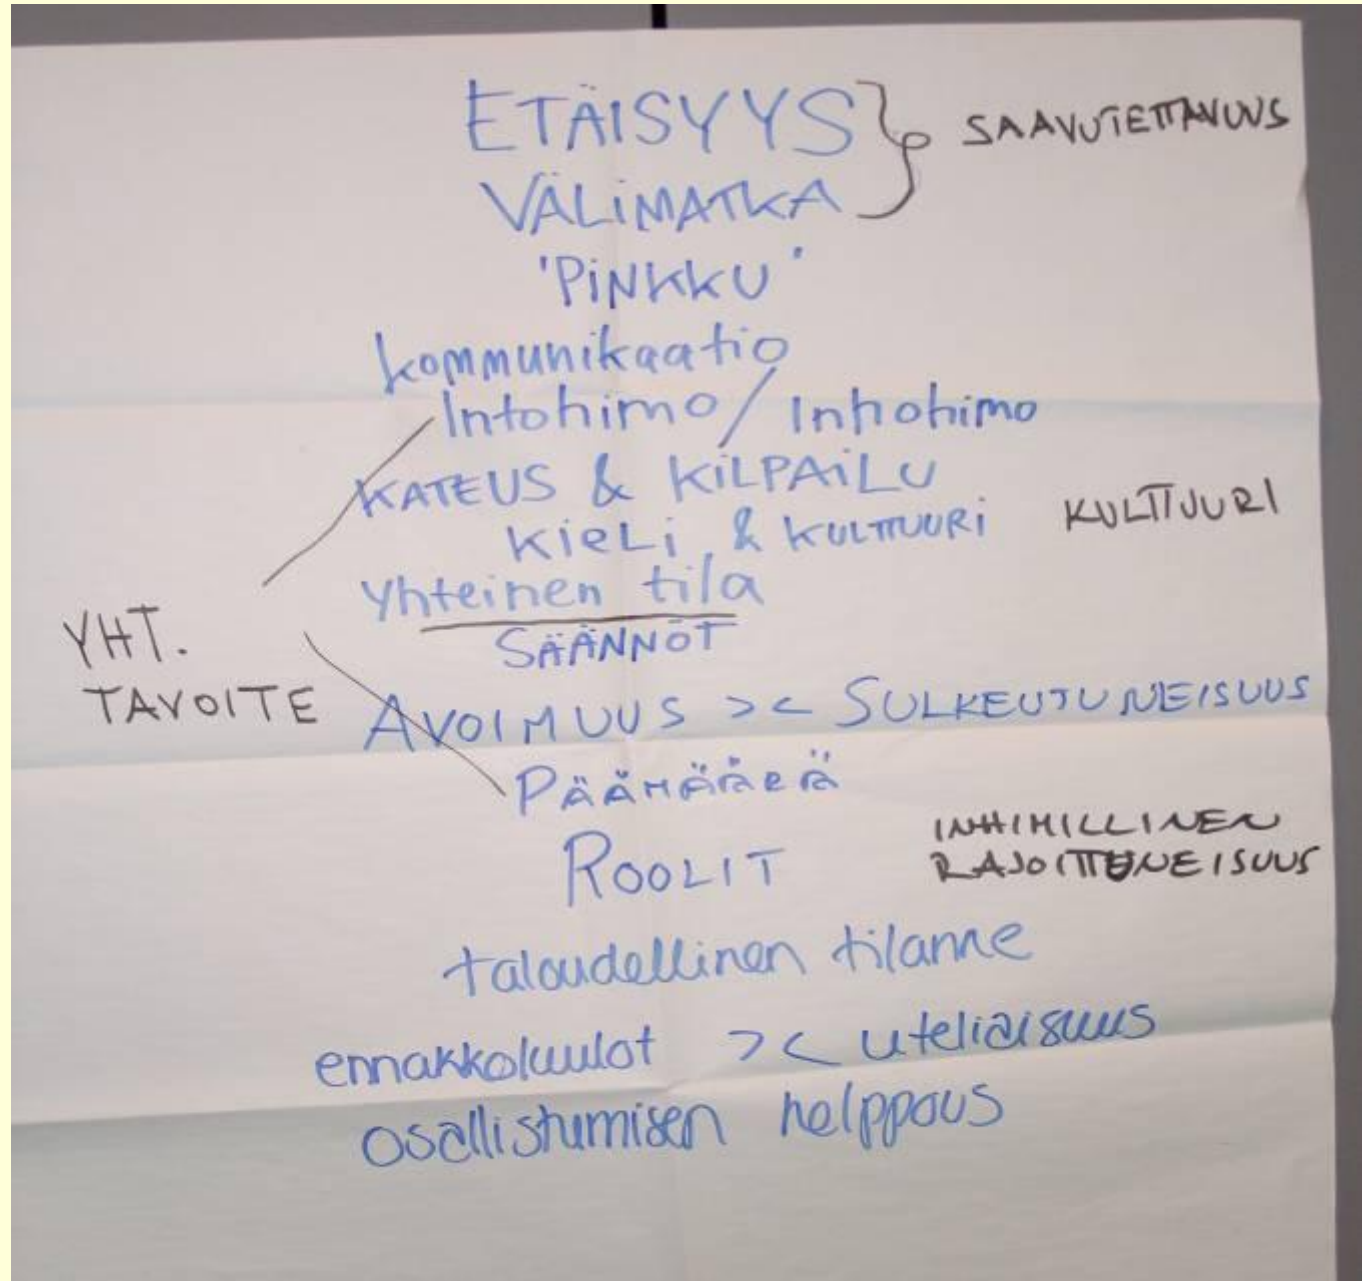 ETÄISYYS
VÄLIMATKA
SAAVUTETTAVUUS
'PINKKU'
kommunikaatio
Intohimo / Inhohimo
KATEUS & KILPAILU
KieLi & KULTTUURi
KULTTUURI
Yhteinen tila
SÄÄNNÖT
YHT.
TAVOITE
AVOIMUUS >< SULKEUTUNEISUUS
PÄÄMÄÄRÄ
ROOLIT
INHIMILLINEN
RAJOITTUNEISUUS
taloudellinen tilanne
ennakkoluulot >< uteliaisuus
osallistumisen helppous